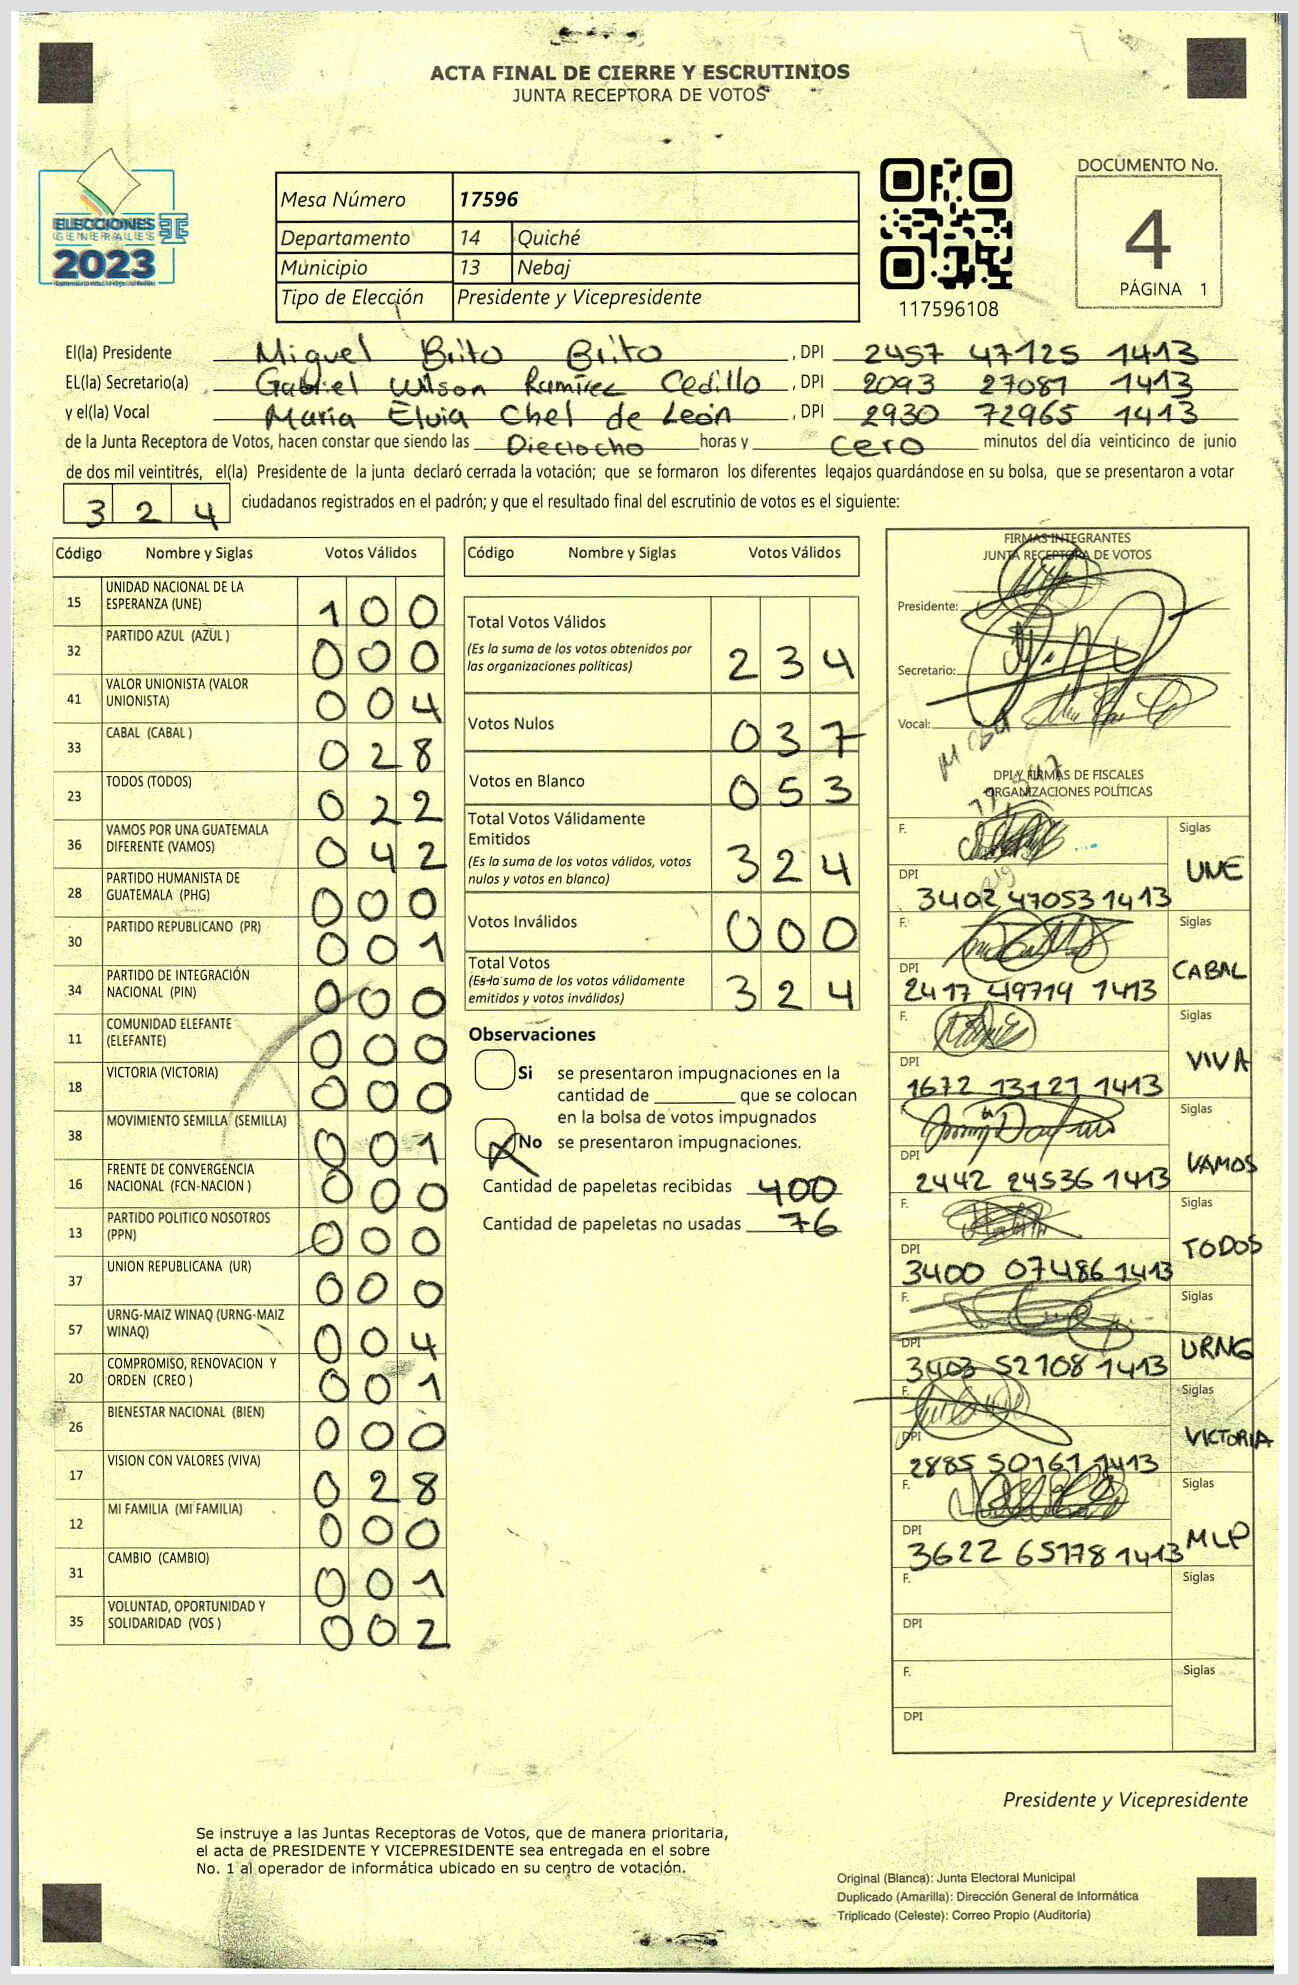 ACTA FINAL DE CIERRE Y ESCRUTINIOS
JUNTA RECEPTORA DE VOTOS
ELECCIONES
GENERALES
2023
Mesa Número 17596
Departamento 14 Quiché
Municipio 13 Nebaj
Tipo de Elección Presidente y Vicepresidente
117596108
DOCUMENTO No.
4
PÁGINA 1
El(la) Presidente Miguel Brito Brito , DPI 2457 47125 1413
EL(la) Secretario(a) Gabriel Wilson Ramírez Cedillo , DPI 2093 27081 1413
y el(la) Vocal María Elvia Chel de León , DPI 2930 72965 1413
de la Junta Receptora de Votos, hacen constar que siendo las Dieciocho horas y cero minutos del día veinticinco de junio
de dos mil veintitrés, el(la) Presidente de la junta declaró cerrada la votación; que se formaron los diferentes legajos guardándose en su bolsa, que se presentaron a votar
324 ciudadanos registrados en el padrón; y que el resultado final del escrutinio de votos es el siguiente:
Código Nombre y Siglas Votos Válidos
15 UNIDAD NACIONAL DE LA
ESPERANZA (UNE) 100
32 PARTIDO AZUL (AZUL ) 000
41 VALOR UNIONISTA (VALOR
UNIONISTA) 004
33 CABAL (CABAL ) 028
23 TODOS (TODOS) 022
36 VAMOS POR UNA GUATEMALA
DIFERENTE (VAMOS) 042
28 PARTIDO HUMANISTA DE
GUATEMALA (PHG) 000
30 PARTIDO REPUBLICANO (PR) 001
34 PARTIDO DE INTEGRACIÓN
NACIONAL (PIN) 000
11 COMUNIDAD ELEFANTE
(ELEFANTE) 000
18 VICTORIA (VICTORIA) 000
38 MOVIMIENTO SEMILLA (SEMILLA) 001
16 FRENTE DE CONVERGENCIA
NACIONAL (FCN-NACION ) 000
13 PARTIDO POLITICO NOSOTROS
(PPN) 000
37 UNION REPUBLICANA (UR) 000
57 URNG-MAIZ WINAQ (URNG-MAIZ
WINAQ) 004
20 COMPROMISO, RENOVACION Y
ORDEN (CREO ) 001
26 BIENESTAR NACIONAL (BIEN) 000
17 VISION CON VALORES (VIVA) 028
12 MI FAMILIA (MI FAMILIA) 000
31 CAMBIO (CAMBIO) 001
35 VOLUNTAD, OPORTUNIDAD Y
SOLIDARIDAD (VOS ) 002
Código Nombre y Siglas Votos Válidos
Total Votos Válidos
(Es la suma de los votos obtenidos por
las organizaciones políticas) 234
Votos Nulos 037
Votos en Blanco 053
Total Votos Válidamente
Emitidos
(Es la suma de los votos válidos, votos
nulos y votos en blanco) 324
Votos Inválidos 000
Total Votos
(Es la suma de los votos válidamente
emitidos y votos inválidos) 324
Observaciones
Si se presentaron impugnaciones en la
cantidad de ________ que se colocan
en la bolsa de votos impugnados
No se presentaron impugnaciones.
Cantidad de papeletas recibidas 400
Cantidad de papeletas no usadas 76
FIRMAS INTEGRANTES
JUNTA RECEPTORA DE VOTOS
Presidente:
Secretario:
Vocal:
DPI Y FIRMAS DE FISCALES
ORGANIZACIONES POLÍTICAS
F. Siglas
UNE
DPI 3402 47053 1413
F. Siglas
CABAL
DPI 2417 49719 1413
F. Siglas
VIVA
DPI 1672 13121 1413
F. Siglas
VAMOS
DPI 2442 24536 1413
F. Siglas
TODOS
DPI 3400 07486 1413
F. Siglas
URNG
DPI 3403 52708 1413
F. Siglas
VICTORIA
DPI 2885 50161 1413
F. Siglas
MLP
DPI 3622 65178 1413
F. Siglas
DPI
F. Siglas
DPI
Presidente y Vicepresidente
Se instruye a las Juntas Receptoras de Votos, que de manera prioritaria,
el acta de PRESIDENTE Y VICEPRESIDENTE sea entregada en el sobre
No. 1 al operador de informática ubicado en su centro de votación.
Original (Blanca): Junta Electoral Municipal
Duplicado (Amarilla): Dirección General de Informática
Triplicado (Celeste): Correo Propio (Auditoría)